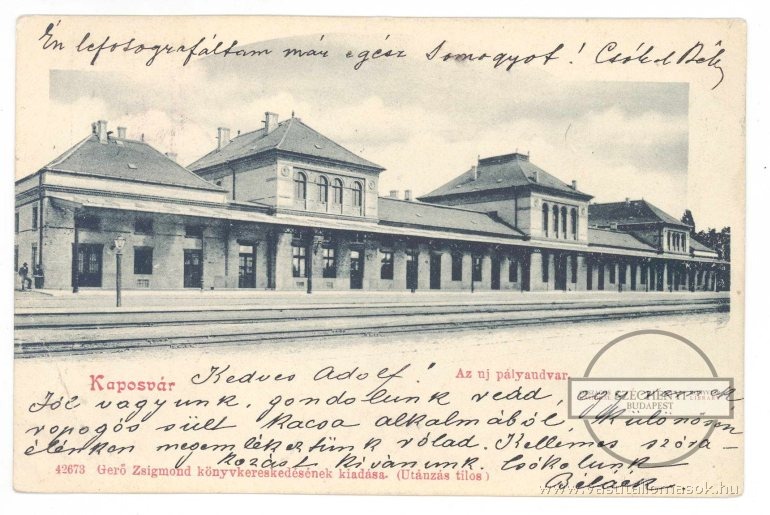 Én lefotografáltam már egész Somogyot! Csókol Béla
Kaposvár
Az uj pályaudvar.
Kedves Adolf!
Jól vagyunk, gondolunk reád, egy
ropogós sült kacsa alkalmából, különösen
élénken megemlékeztünk rólad. Kellemes szóra-
kozást kívánunk. Csókolunk
Béláék
42673 Gerő Zsigmond könyvkereskedésének kiadása. (Utánzás tilos)
SZÉCHÉNYI
BUDAPEST
www.vasutallomasok.hu